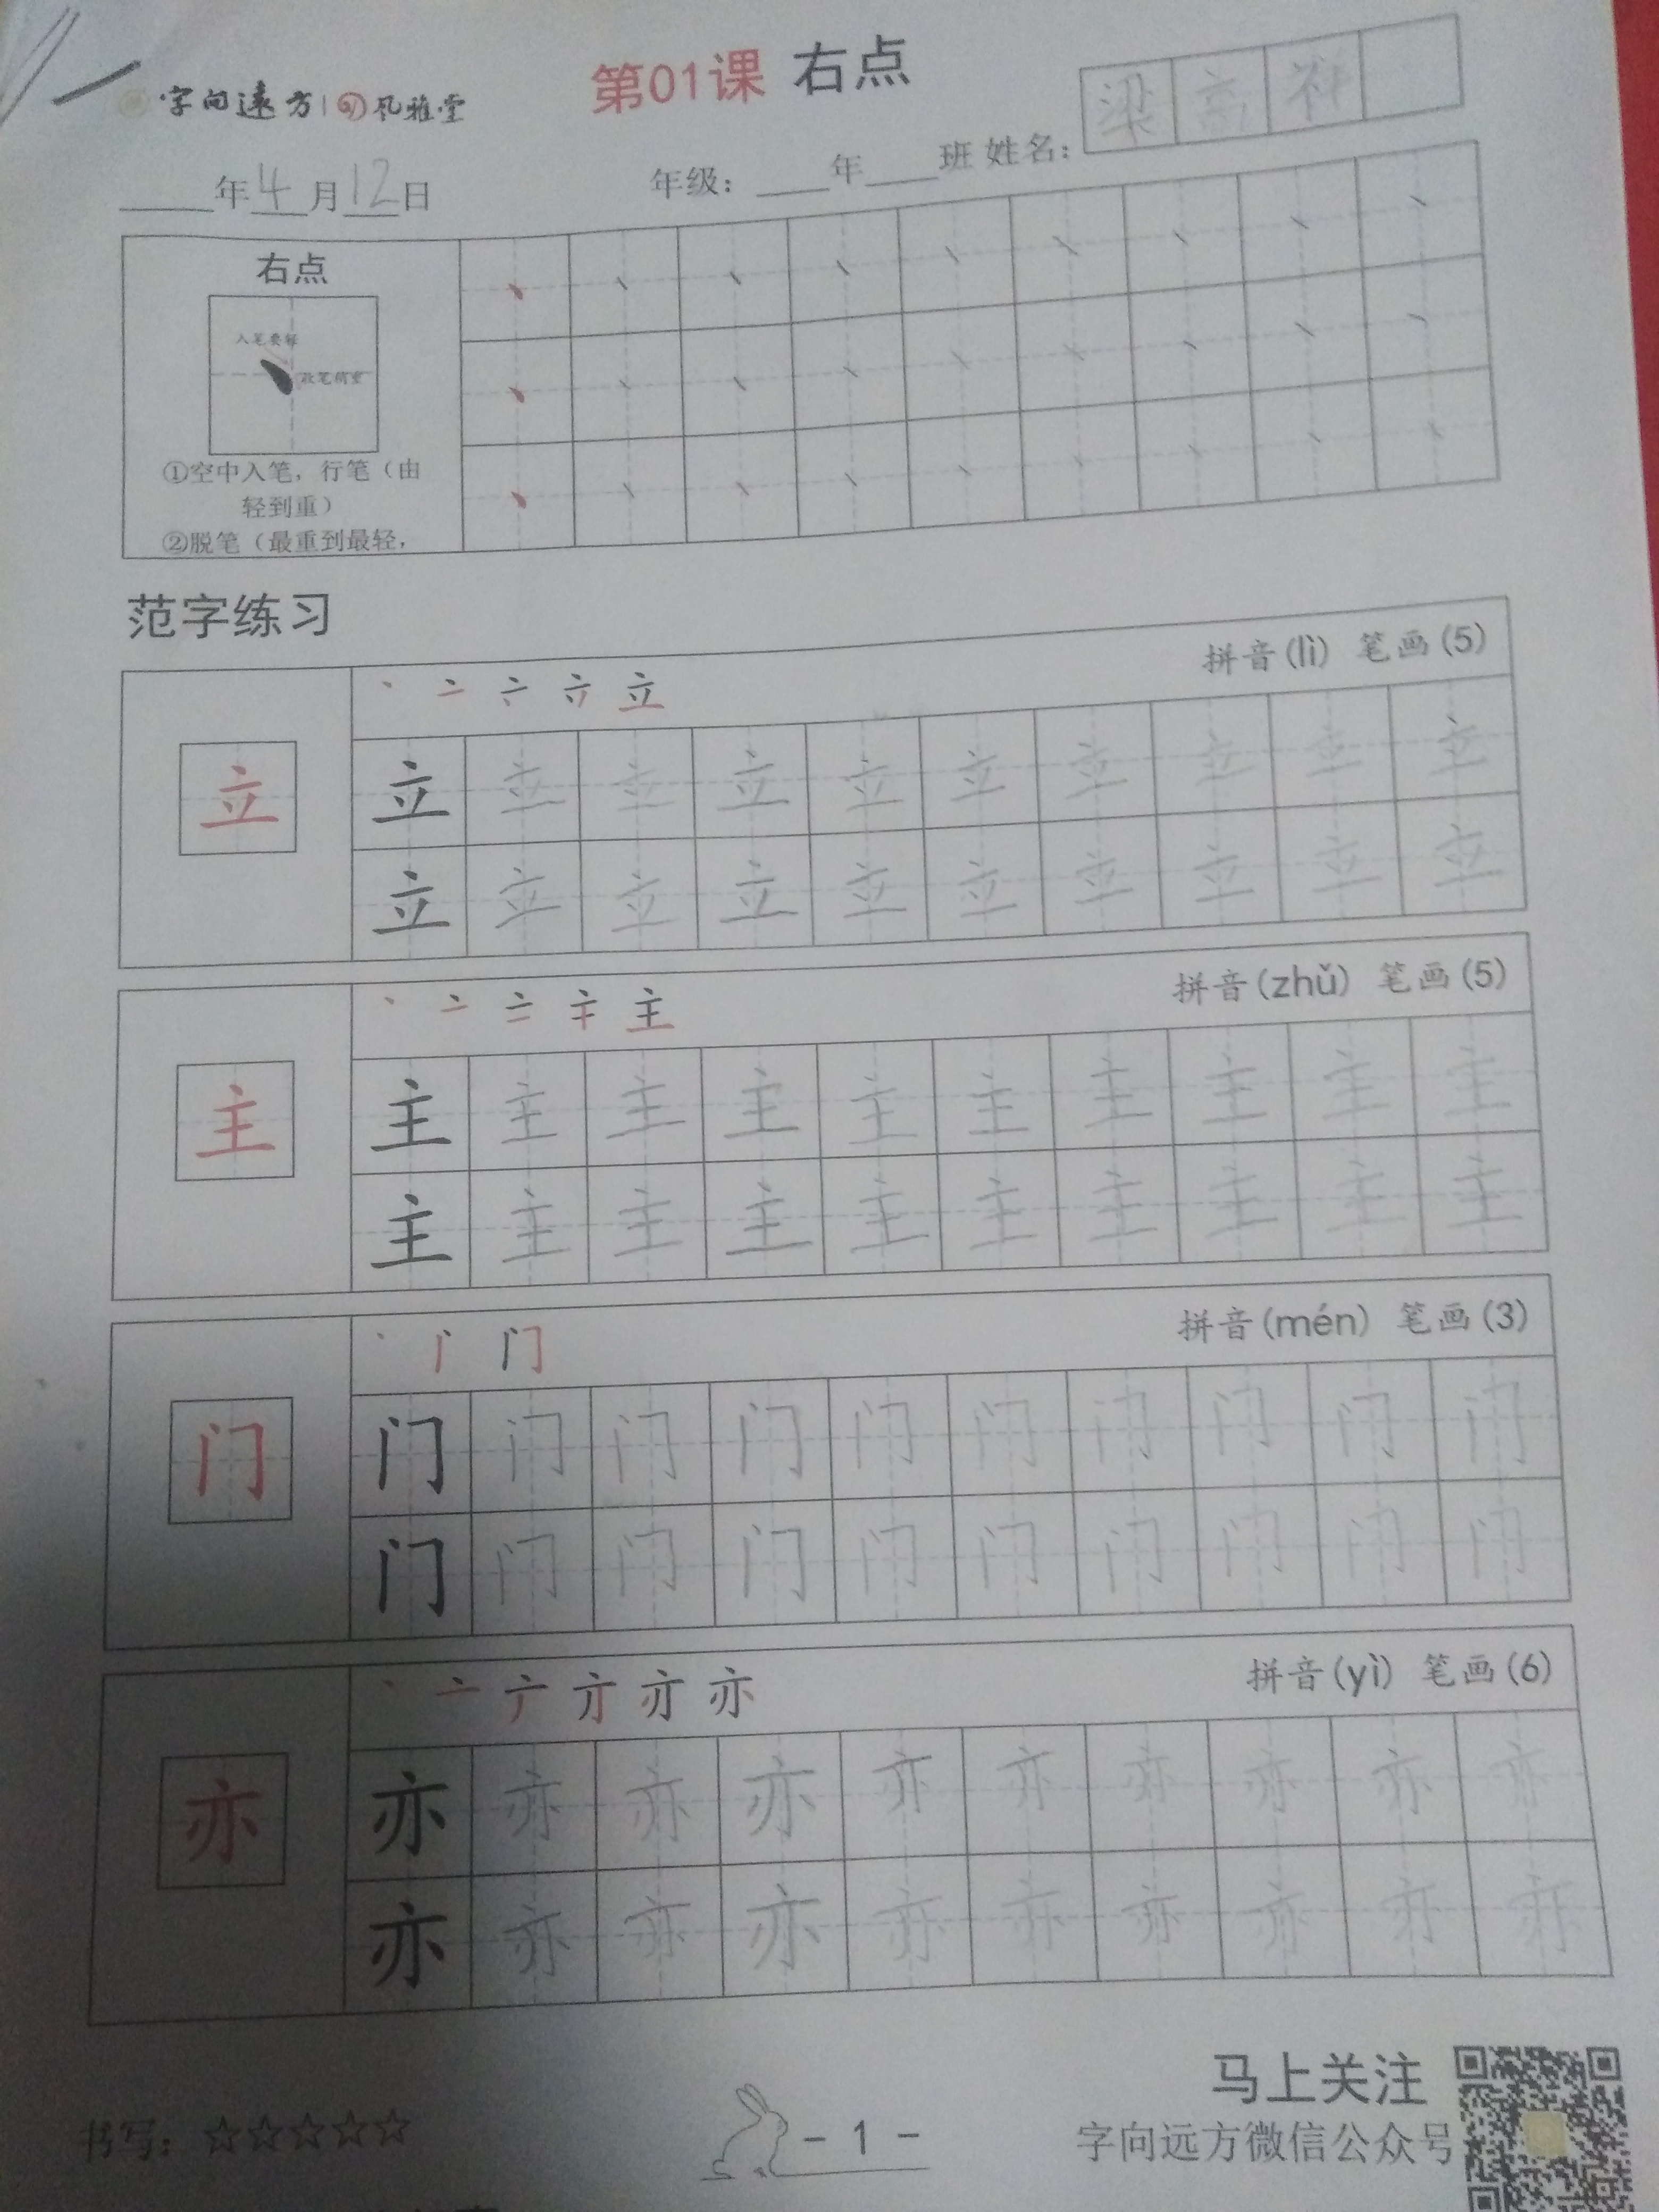 字向远方 风雅堂
第01课 右点
年级：___年___班 姓名：梁高
____年4月12日
右点
入笔要轻
收笔稍重
①空中入笔，行笔（由
轻到重）
②脱笔（最重到最轻，
范字练习
拼音(lì) 笔画(5)
立
立 立 立 立 立 立 立 立 立 立
立 立 立 立 立 立 立 立 立 立
拼音(zhǔ) 笔画(5)
主
主 主 主 主 主 主 主 主 主 主
主 主 主 主 主 主 主 主 主 主
拼音(mén) 笔画(3)
门
门 门 门 门 门 门 门 门 门 门
门 门 门 门 门 门 门 门 门 门
拼音(yì) 笔画(6)
亦
亦 亦 亦 亦 亦 亦 亦 亦 亦 亦
亦 亦 亦 亦 亦 亦 亦 亦 亦 亦
书写：☆☆☆☆☆
- 1 -
马上关注
字向远方微信公众号